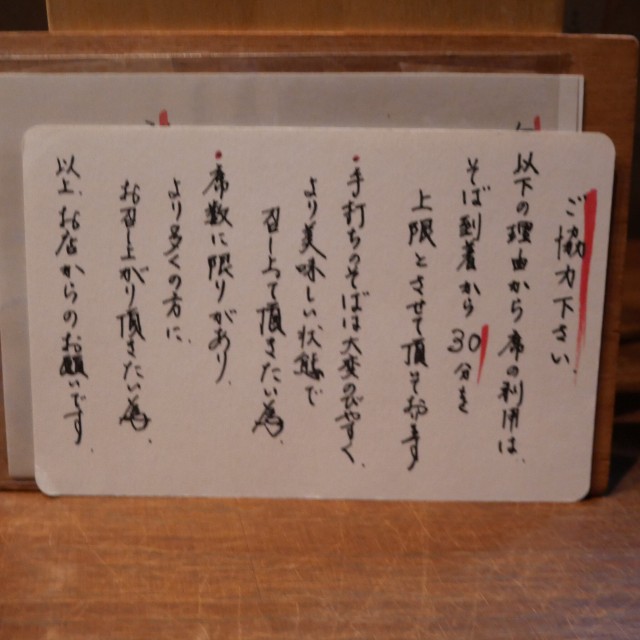 ご協力下さい
以下の理由から席の利用は、
そば到着から30分を
上限とさせて頂いております
・手打ちのそばは大変のびやすく、
より美味しい状態で
召し上って頂きたい為、
・席数に限りがあり、
より多くの方に、
お召し上がり頂きたい為、
以上、お店からのお願いです。